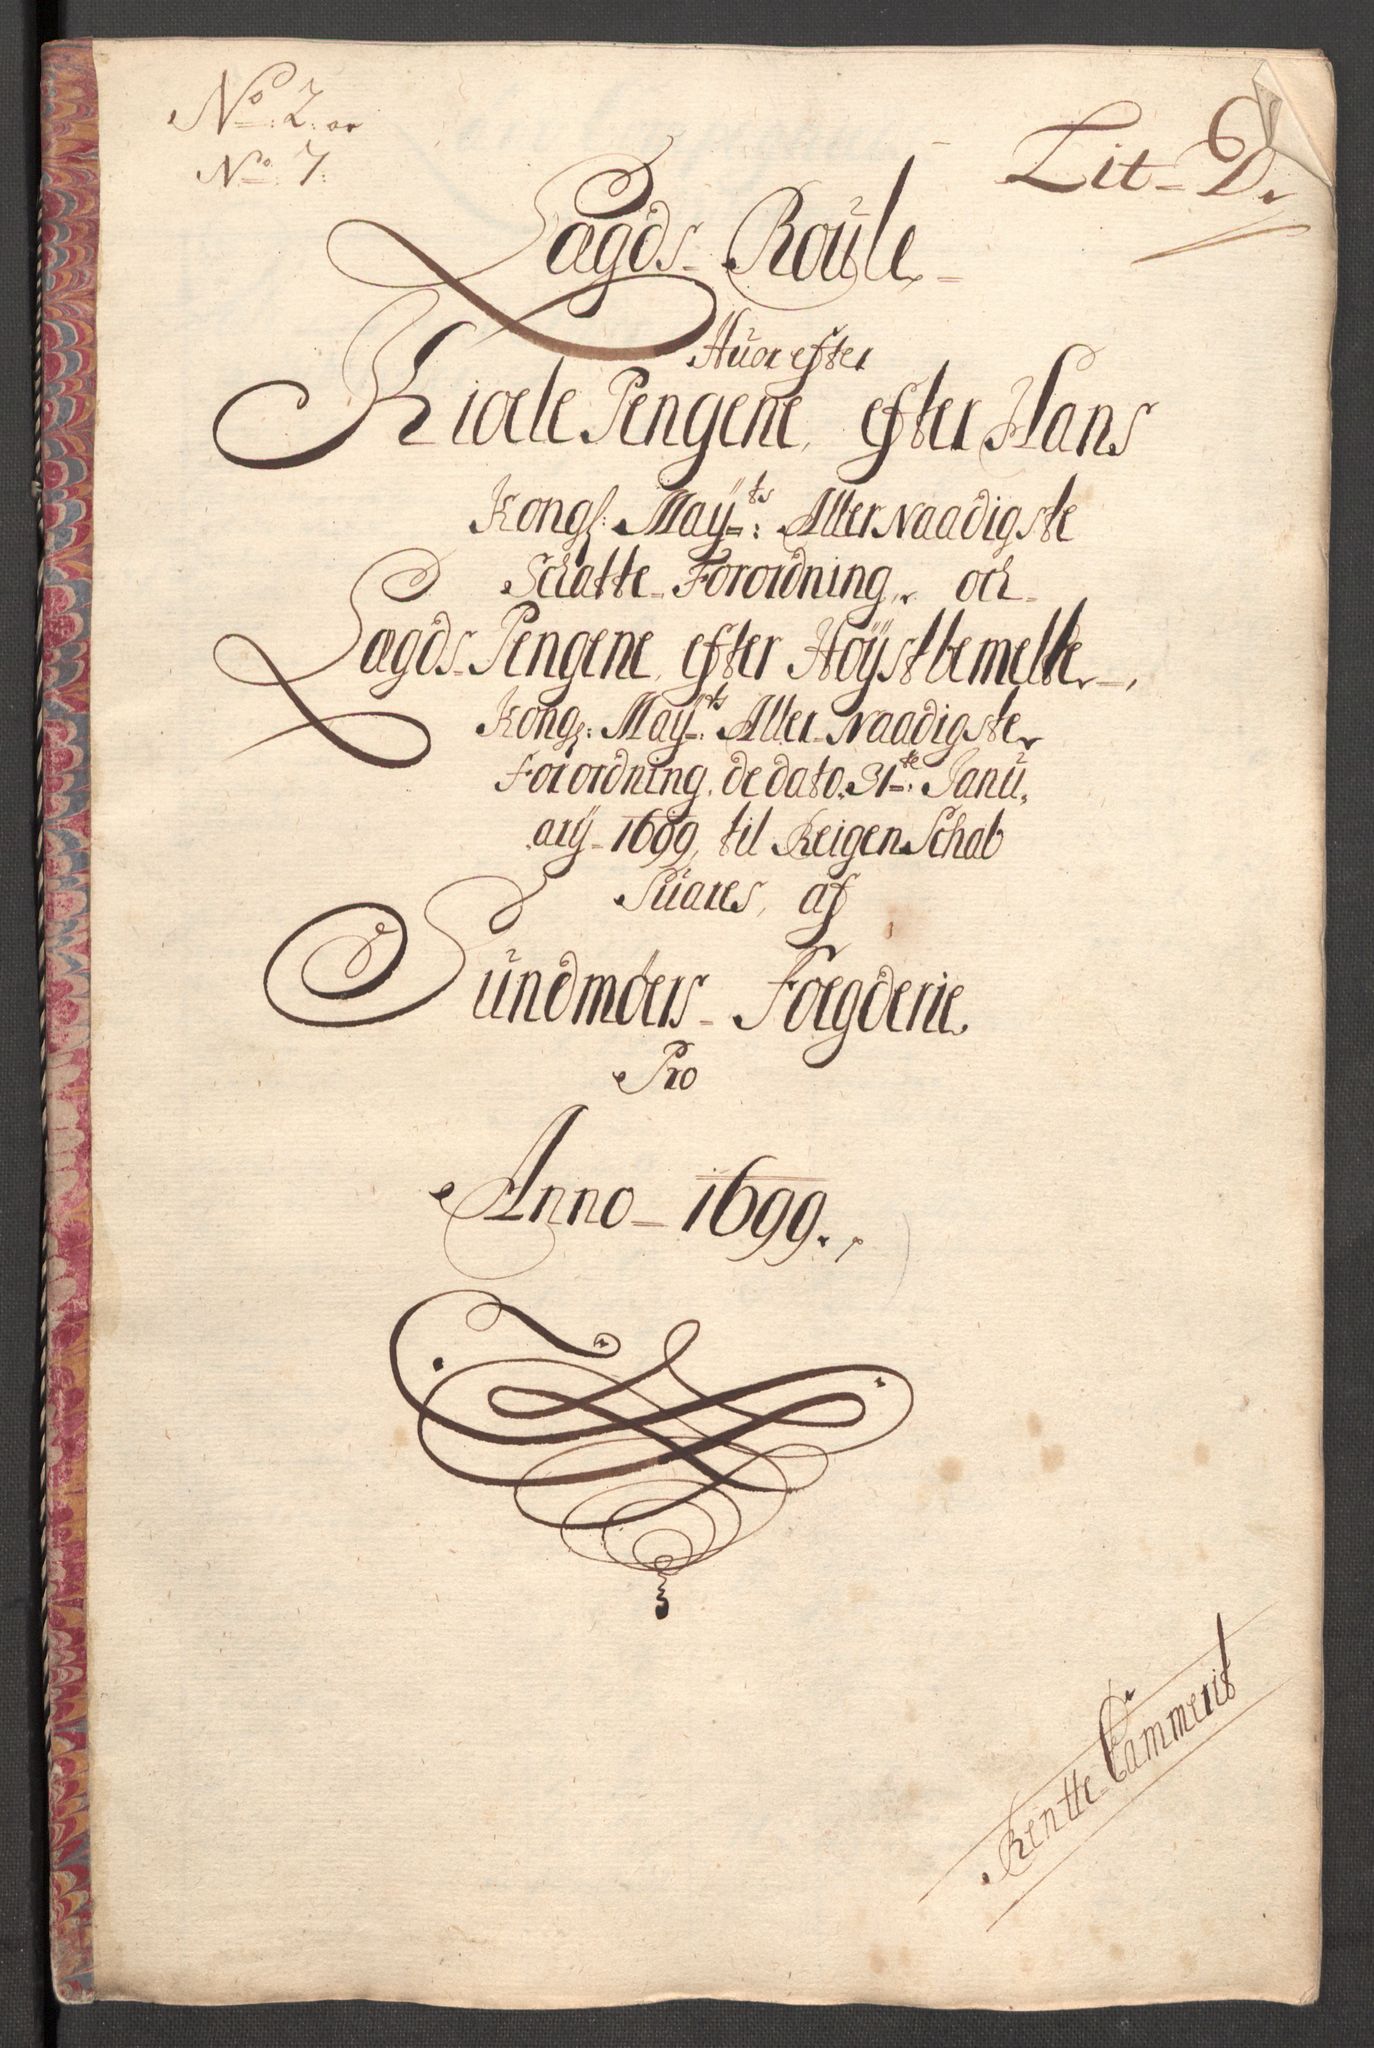 No. 2. or
No. 7.
Lit. D.
Lægds Roule
Huor efter
Kiole Pengene, efter Hans
Kongl: Mayts: Aller Naadigste
Schatte Forordning, och
Lægds Pengene, efter Höystbemelte
Kongl: Mayts: Aller Naadigste
Forordning, de dato 31te: Janu,,
ary 1699, til Reigenschab
Suares, af
Sundmöers Foegderie
Pro
Anno 1699.
Rentte Cammerit